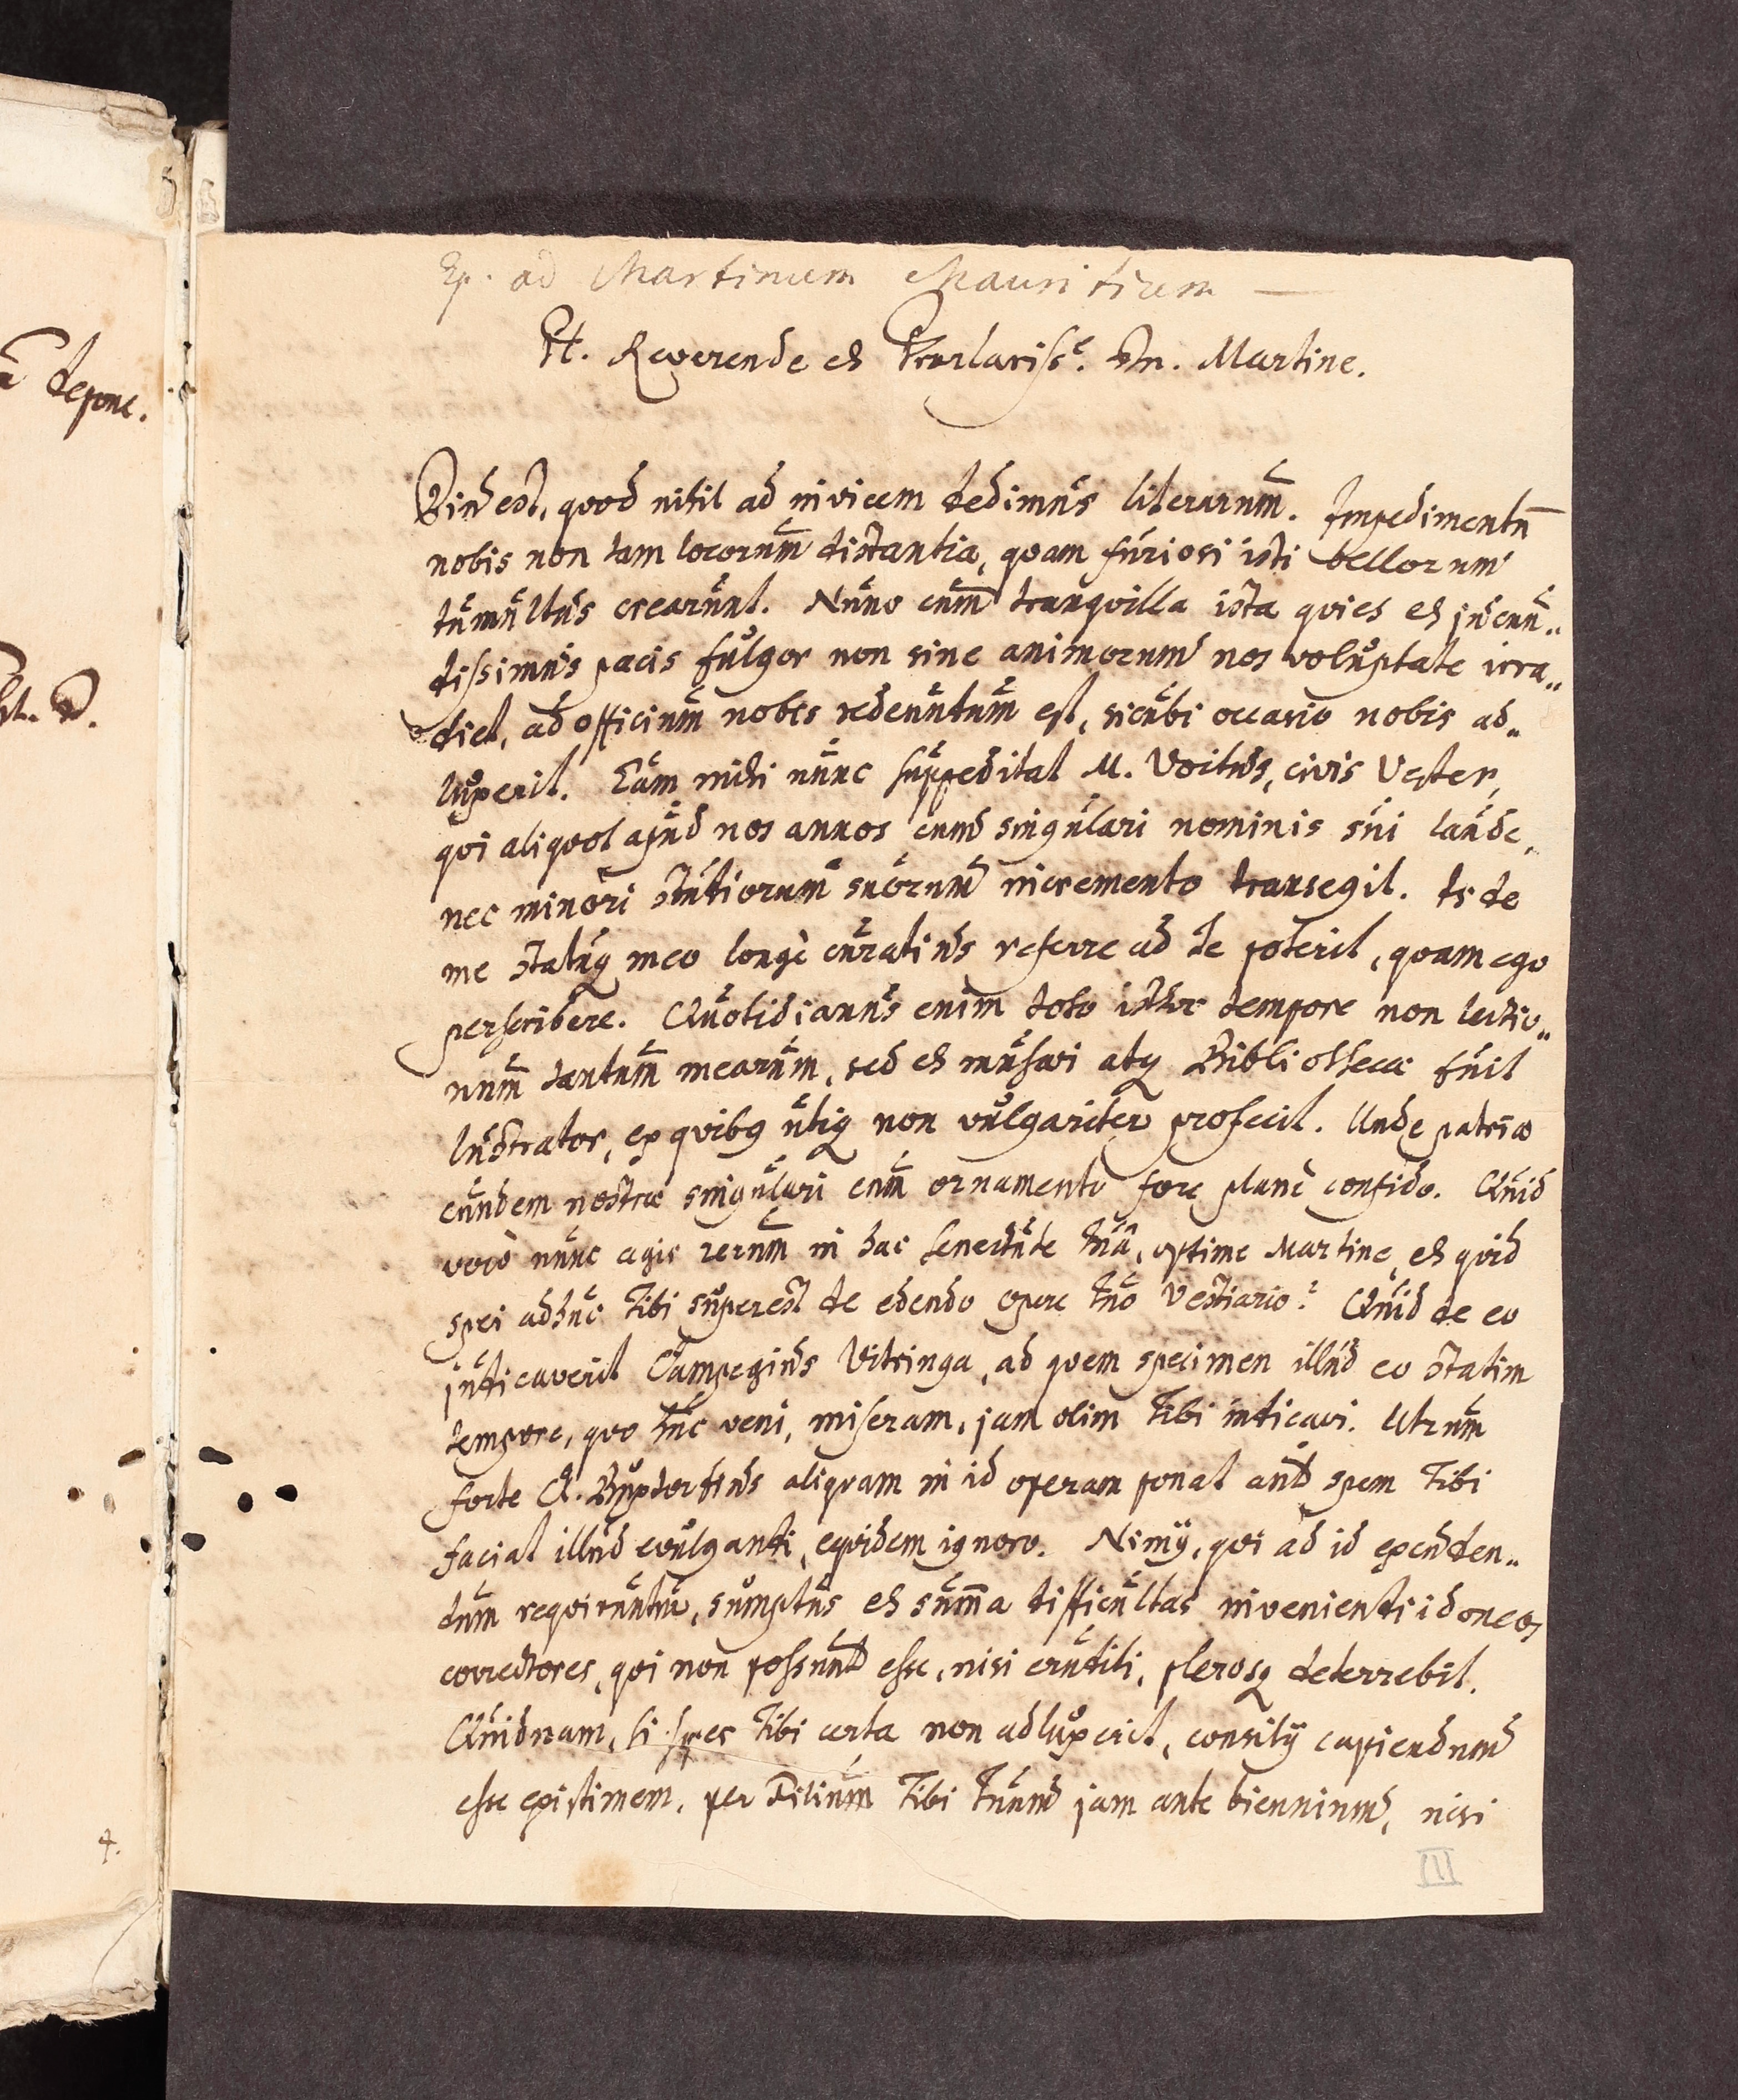 depone.
Ep. ad Martinum Mauritium —
Pl. Reverende et Praeclariss.e Dn. Martine.
Diu est, quod nihil ad invicem dedimus literarum. Impedimentū
nobis non tam locorum distantia, quam furiosi isti bellorum
tumultus crearunt. Nunc cum tranquilla ista quies et jucun„
dissimus pacis fulgor non sine animorum nos voluptate irra„
diet, ad officium nobis redeuntum est, sicubi occasio nobis ad„
luxerit. Eam mihi nunc suppeditat M. Voitus, civis Vester,
qui aliquot apud nos annos cum singulari nominis sui laude,
nec minori studiorum suorum incremento transegit. Is de
me statuq meo longè curatius referre ad te poterit, quam ego
perscribere. Quotidianus enim toto isthoc tempore non lectio„
num tantum mearum, sed et musaei atq Bibliothecae fuit
lustrator, ex quibq utiq non vulgariter profecit. Unde patriae
eundem nostrae singulari cum ornamento fore planè confido. Quid
verò nunc agis rerum in hac senectute tuâ, optime Martine, et quid
spei adhuc Tibi superest de edendo opere tuo Vestiario? Quid de eo
judicaverit Campegius Vitringa, ad quem specimen illud eo statim
tempore, quo huc veni, miseram, jam olim Tibi indicavi. Utrum
forte Cl. Buxtorfius aliquam in id operam ponat aut spem Tibi
faciat illud evulgandi, equidem ignoro. Nimij, qui ad id excuden„
dum requiruntur, sumptus et summa difficultas inveniendi idoneos
correctores, qui non possunt esse, nisi eruditi, plerosq deterrebit.
Quidnam, si spes Tibi certa non adluxerit, consilij capiendum
esse existimem, per Filium Tibi tuum jam ante biennium, nisi
4.
III